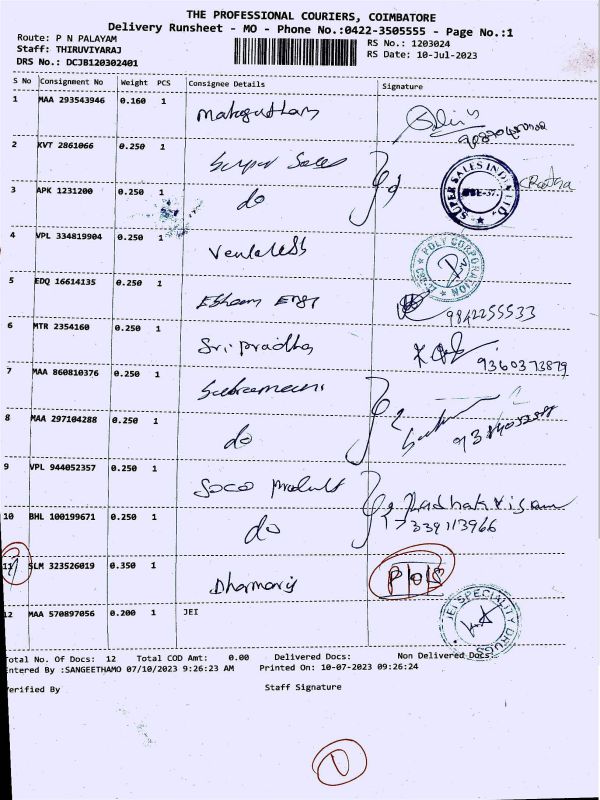 THE PROFESSIONAL COURIERS, COIMBATORE
Delivery Runsheet - MO - Phone No.:0422-3505555 - Page No.:1
Route: P N PALAYAM
RS No.: 1203024
Staff: THIRUVIYARAJ
RS Date: 10-Jul-2023
DRS No.: DCJB120302401
S No Consignment No Weight PCS Consignee Details Signature
1 MAA 293543946 0.160 1
2 KVT 2861066 0.250 1 Super Sales
SUPER SALES INDIA LTD.
3 APK 1231200 0.250 1 do
4 VPL 334819904 0.250 1
POLY CORPORATION
5 EDQ 16614135 0.250 1 9842255533
6 MTR 2354160 0.250 1 Sri pradha 9360373879
7 MAA 860810376 0.250 1 Subramani
8 MAA 297104288 0.250 1 do
9 VPL 944052357 0.250 1 Soco product
10 BHL 100199671 0.250 1 do
11 SLM 323526019 0.350 1
12 MAA 570897056 0.200 1 JEI
JEI SPECIALITY DRUGS
Total No. Of Docs: 12 Total COD Amt: 0.00 Delivered Docs: Non Delivered Docs:
Entered By :SANGEETHAMO 07/10/2023 9:26:23 AM Printed On: 10-07-2023 09:26:24
Verified By Staff Signature
1